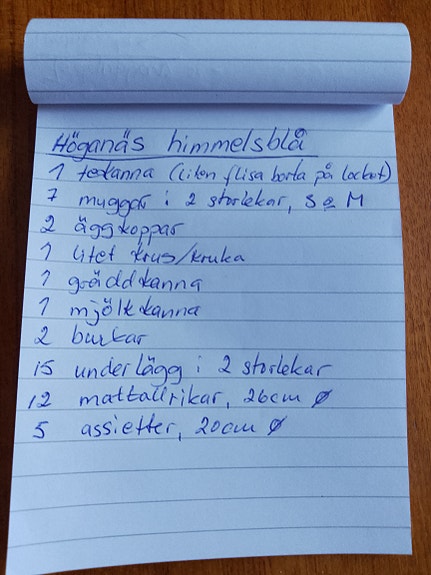 Höganäs himmelsblå
1 tekanna (liten flisa borta på locket)
7 muggar i 2 storlekar, S o M
2 äggkoppar
1 litet krus/kruka
1 gräddkanna
1 mjölkkanna
2 burkar
15 underlägg i 2 storlekar
12 mattallrikar, 26cm ø
5 assietter, 20cm ø